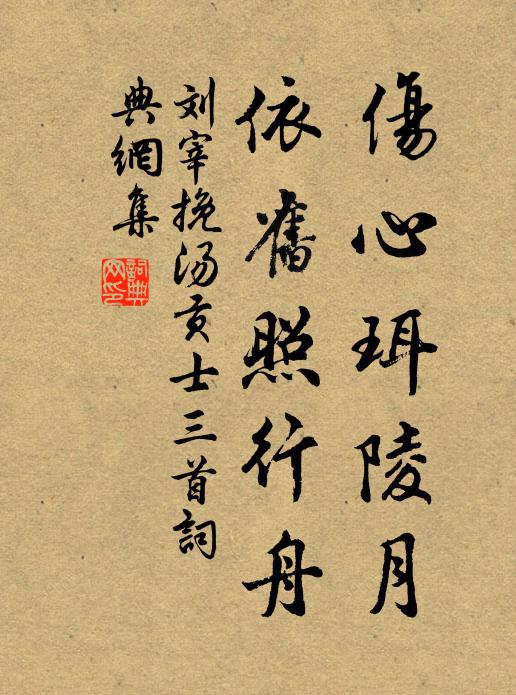 傷心珥陵月
依舊照行舟
刘宰挽汤贡士三首詞
典網集
詞典
网印